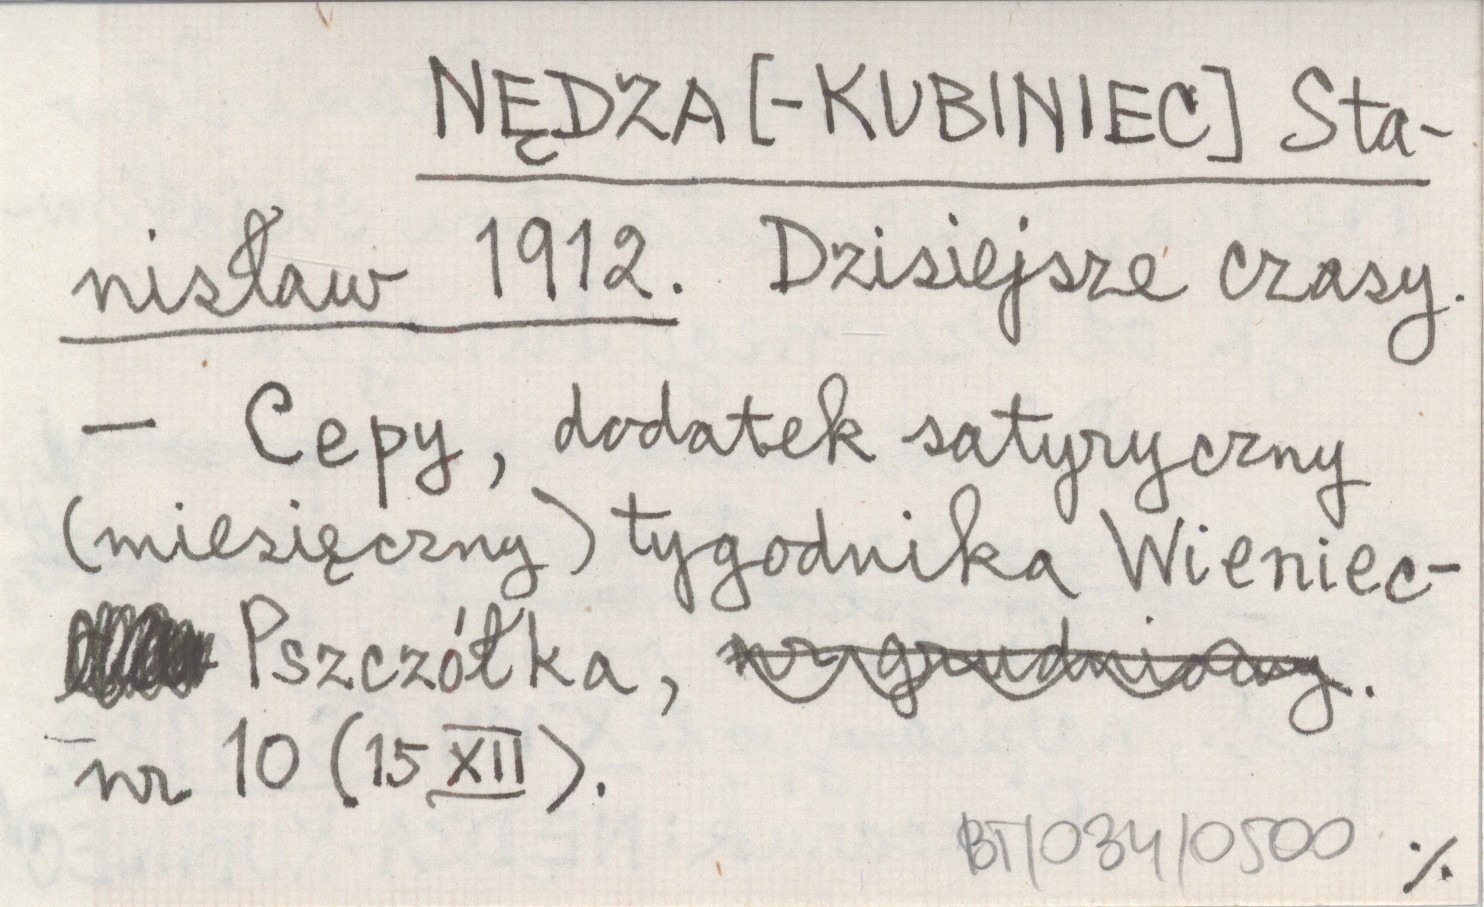 NĘDZA [-KUBINIEC] Sta-
nisław 1912. Dzisiejsze czasy.
— Cepy, dodatek satyryczny
(miesięczny) tygodnika Wieniec-
Pszczółka, nr grudniowy.
nr 10 (15 XII).
BT/034/0500 ./.